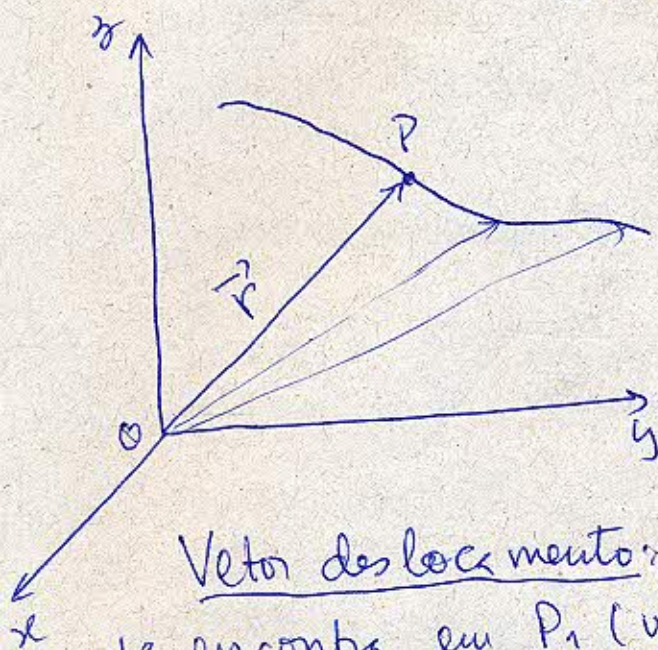 z
P
r⃗
O
y
Vetor deslocamento:
x
se encontra em P1 (v